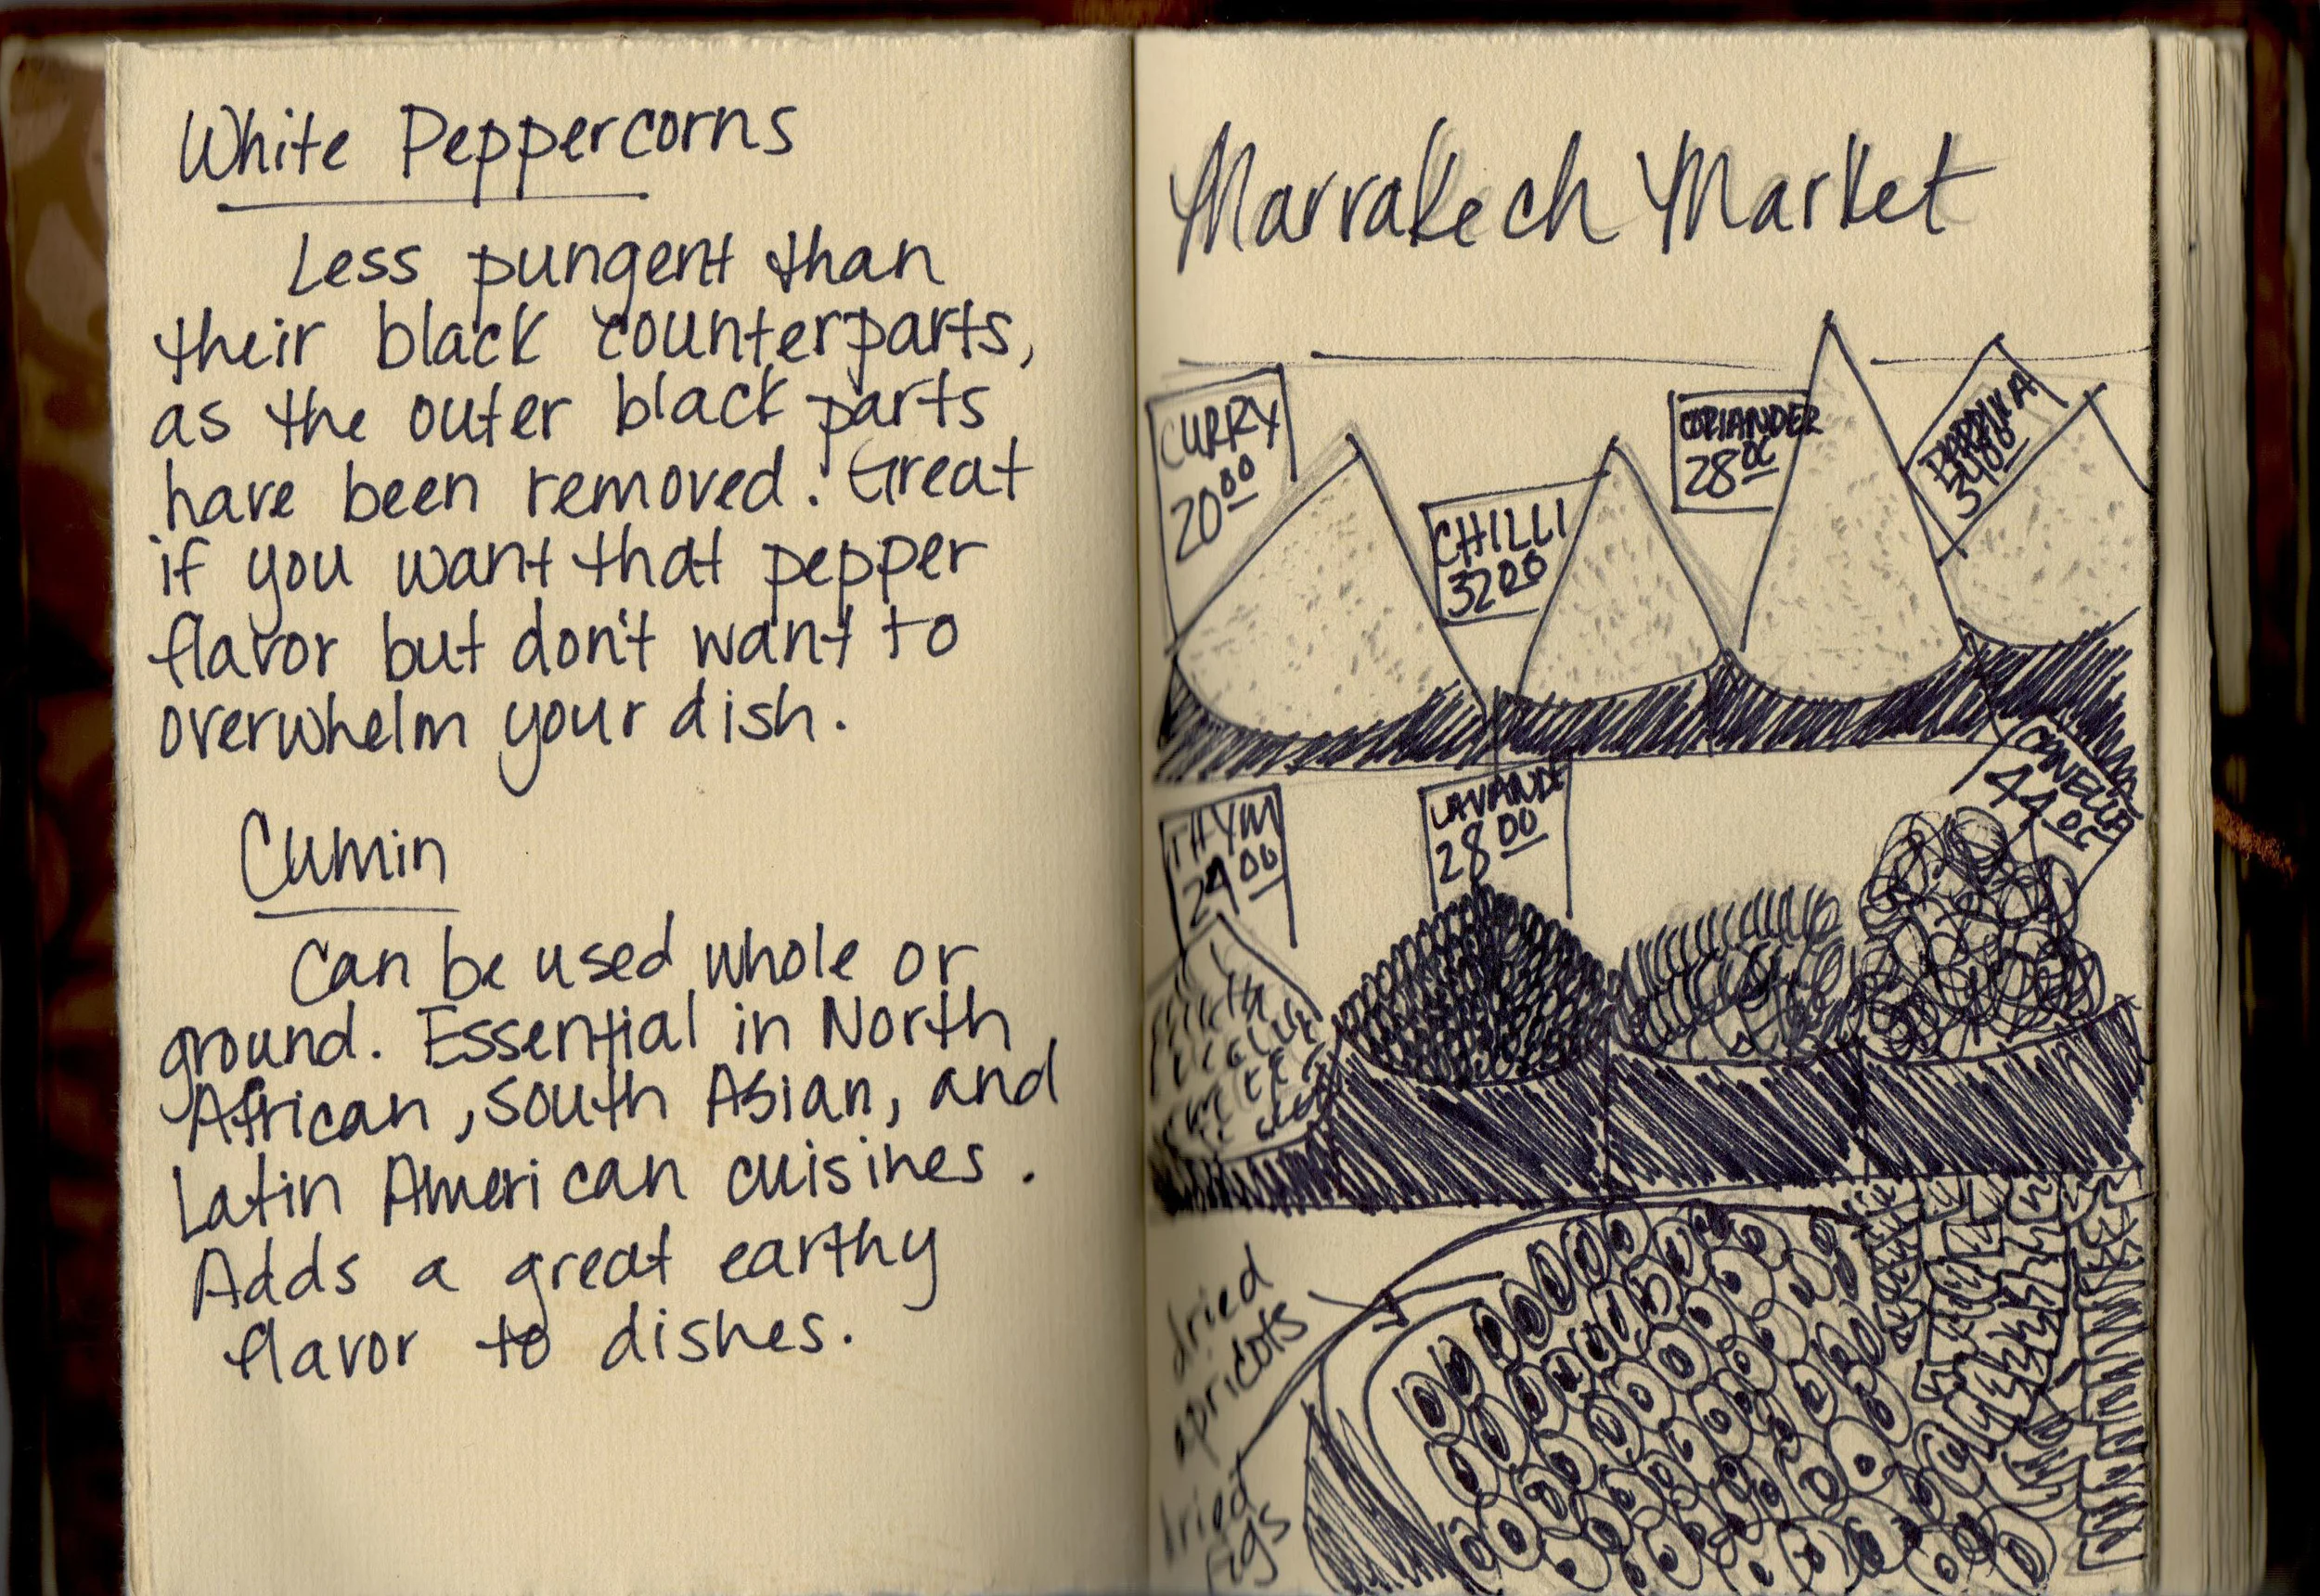 White Peppercorns
Less pungent than
their black counterparts,
as the outer black parts
have been removed. Great
if you want that pepper
flavor but don't want to
overwhelm your dish.
Cumin
Can be used whole or
ground. Essential in North
African, south Asian, and
Latin American cuisines.
Adds a great earthy
flavor to dishes.
Marrakech Market
CURRY
20 00
CHILLI
32 00
CORIANDER
28 00
PAPRIKA
34 00
THYM
24 00
LAVANDE
28 00
44 00
dried
apricots
dried
figs